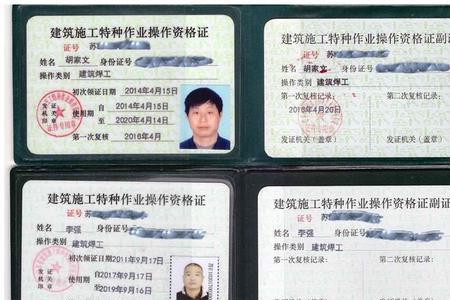 建筑施工特种作业操作资格证
证号 苏
姓名 胡家文 身份证号
操作类别 建筑焊工
初次领证日期 2014年4月15日
使用期 自 2014年4月15日
至 2020年4月14日
第一次复核 2016年4月
发证
机关
印章
证件专用章
建筑施工特种作业操作资格证副
证号 苏
姓名 胡家文 身份证号
操作类别 建筑焊工
第一次复核记录: 第二次复核记录:
2018年4月20日
发证机关(盖章) 发证机关(盖章)
建筑施工特种作业操作资格证
证号 苏
姓名 李强 身份证号
操作类别 建筑焊工
初次领证日期 2011年9月17日
使用期 自 2017年9月17日
至 2019年9月16日
发证
机关
建筑施工特种作业操作资格证副证
证号 苏
姓名 李强 身份证号
操作类别 建筑焊工
第一次复核记录: 第二次复核记录: